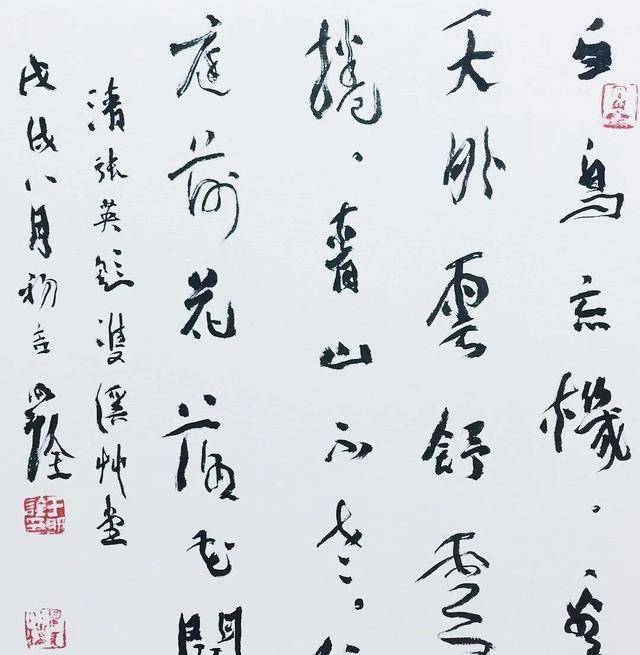 白鳥忘機、看
天外雲舒雲
捲、青山不老。任
庭前花落花開
清張英題雙溪艸堂
戊戌八月初吉